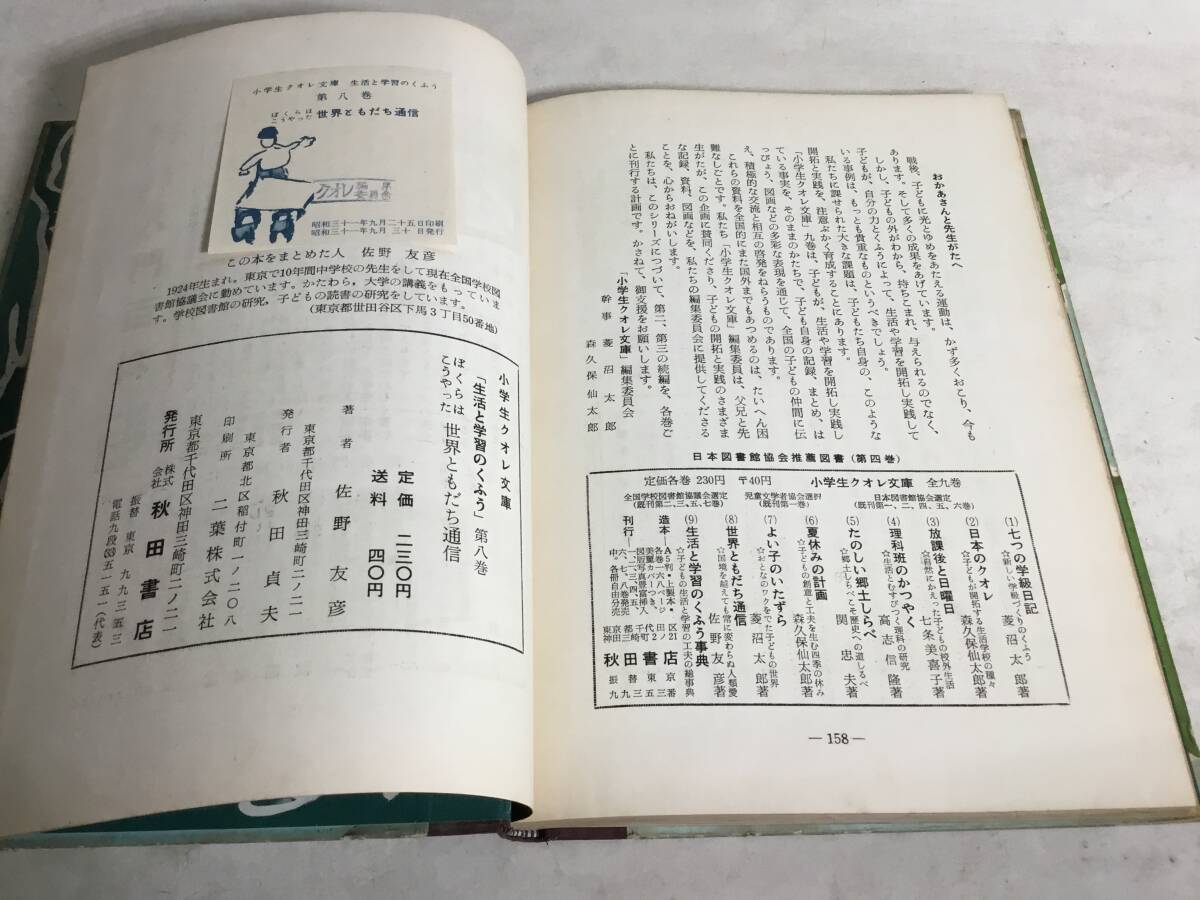 おかあさんと先生がたへ
戦後、子どもに光とゆめをあたえる運動は、かず多くおこり、今も
あります。そして多くの成果をあげています。
しかし、子どもの外がわから、持ちこまれ、与えられるのでなく、
子どもが、自分の力とくふうによって、生活や学習を開拓し実践して
いる事例は、もっとも貴重なものというべきでしょう。
私たちに課せられた大きな課題は、子どもたち自身の、このような
開拓と実践を、注意ぶかく育成することにあります。
「小学生クオレ文庫」九巻は、子どもが、生活や学習を開拓し実践し
ている事実を、そのままのかたちで、子ども自身の記録、まとめ、は
っぴょう、図画などの多彩な表現を通じて、全国の子どもの仲間に伝
え、積極的な交流と相互の啓発をねらうものであります。
これらの資料を全国的にまた国外までもあつめるのは、たいへん困
難なしごとです。私たち「小学生クオレ文庫」編集委員は、父兄と先
生がたが、この企画に賛同くださり、子どもの開拓と実践のさまざま
な記録、資料、図画などを、私たちの編集委員会に提供してくださる
ことを、心からおねがいします。
私たちは、このシリーズにつづいて、第二、第三の続編を、各巻ご
とに刊行する計画です。かさねて、御支援をお願いします。
「小学生クオレ文庫」編集委員会
幹事 菱沼太郎
森久保仙太郎
日本図書館協会推薦図書(第四巻)
定価各巻 230円 〒40円 小学生クオレ文庫 全九巻
全国学校図書館協議会選定
(既刊第二、三、五、七巻)
児童文学者協会選択
(既刊第一巻)
日本図書館協会選定
(既刊第一、二、四、五、六巻)
(1)七つの学級日記
☆新しい学級づくりのくふう
菱沼太郎著
(2)日本のクオレ
☆子どもが開拓する生活学校の種々
森久保仙太郎著
(3)放課後と日曜日
七条美喜子著
(4)理科班のかつやく
☆生活とむすびつく理科の研究
高志信隆著
(5)たのしい郷土しらべ
☆郷土しらべこそ歴史への道しるべ
関忠夫著
(6)夏休みの計画
☆子どもの創意と工夫を生む四季の休み
森久保仙太郎著
(7)よい子のいたずら
☆おとなのワクをでた子どもの世界
菱沼太郎著
(8)世界ともだち通信
☆国境を越えても常に変わらぬ人類愛
佐野友彦著
(9)生活と学習のくふう事典
☆子どもの生活と学習の工夫の総事典
造本―A5判・上製本・
各巻一六八ページ・
美麗カバーつき・
図版写真豊富挿入
刊行―一、二、三、四、五、
六、七、八巻発売
中。各冊自由分売
秋田書店
―158―
小学生クオレ文庫 生活と学習のくふう
第八巻
ぼくらは
こうやった 世界ともだち通信
クオレ
昭和三十一年九月二十五日印刷
昭和三十一年九月三十日発行
この本をまとめた人 佐野友彦
1924年生まれ。東京で10年間中学校の先生をして現在全国学校図
書館協議会に勤めています。かたわら、大学の講義をもっていま
す。学校図書館の研究,子どもの読書の研究をしています。
(東京都世田谷区下馬3丁目50番地)
小学生クオレ文庫
「生活と学習のくふう」第八巻
ぼくらは
こうやった 世界ともだち通信
定価 二三〇円
送料 四〇円
著者 佐野友彦
東京都千代田区神田三崎町二ノ二一
発行者 秋田貞夫
東京都北区稲付町一ノ二〇八
印刷所 二葉株式会社
東京都千代田区神田三崎町二ノ二一
発行所 株式会社 秋田書店
振替東京 九九三五三
電話九段(33)五一五一(代表)